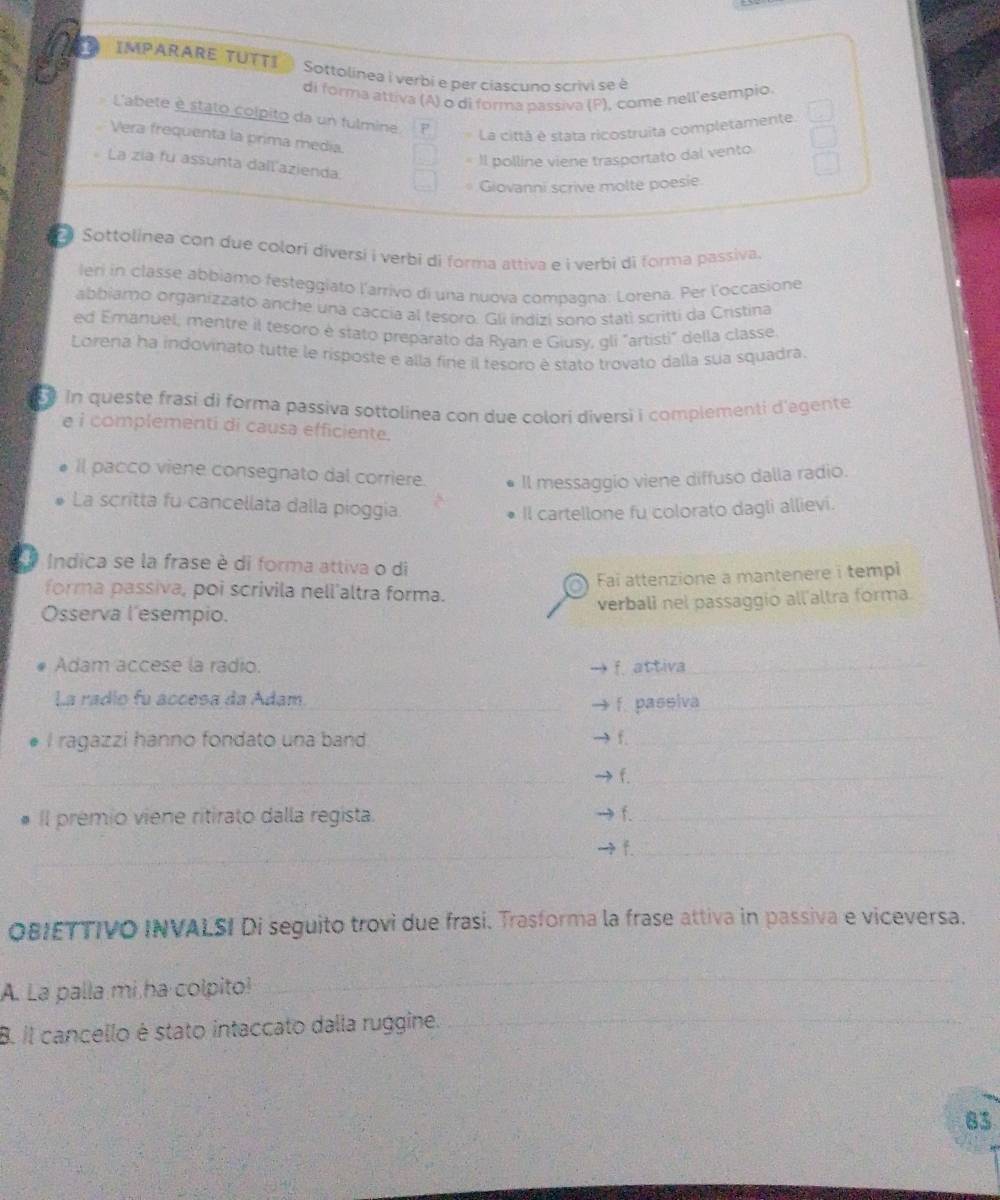 1 IMPARARE TUTTI Sottolinea i verbi e per ciascuno scrivi se è
di forma attiva (A) o di forma passiva (P), come nell'esempio.
L'abete è stato colpito da un fulmine. P
Vera frequenta la prima media.
La zia fu assunta dall'azienda.
La città è stata ricostruita completamente.
Il polline viene trasportato dal vento.
Giovanni scrive molte poesie.
2 Sottolinea con due colori diversi i verbi di forma attiva e i verbi di forma passiva.
Ieri in classe abbiamo festeggiato l'arrivo di una nuova compagna: Lorena. Per l'occasione
abbiamo organizzato anche una caccia al tesoro. Gli indizi sono stati scritti da Cristina
ed Emanuel, mentre il tesoro è stato preparato da Ryan e Giusy, gli "artisti" della classe.
Lorena ha indovinato tutte le risposte e alla fine il tesoro è stato trovato dalla sua squadra.
3 In queste frasi di forma passiva sottolinea con due colori diversi i complementi d'agente
e i complementi di causa efficiente.
• Il pacco viene consegnato dal corriere.
• La scritta fu cancellata dalla pioggia.
• Il messaggio viene diffuso dalla radio.
• Il cartellone fu colorato dagli allievi.
4 Indica se la frase è di forma attiva o di
forma passiva, poi scrivila nell'altra forma.
Osserva l'esempio.
Fai attenzione a mantenere i tempi
verbali nel passaggio all'altra forma.
• Adam accese la radio. → f. attiva
La radio fu accesa da Adam. → f. passiva
• I ragazzi hanno fondato una band. → f.
→ f.
• Il premio viene ritirato dalla regista. → f.
→ f.
OBIETTIVO INVALSI Di seguito trovi due frasi. Trasforma la frase attiva in passiva e viceversa.
A. La palla mi ha colpito!
B. Il cancello è stato intaccato dalla ruggine.
83